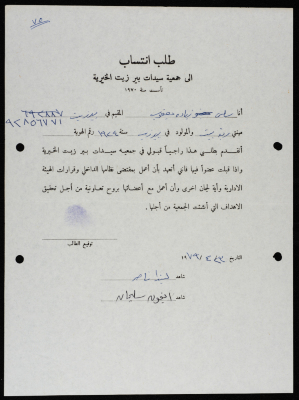 ٧٥
طلب انتساب
الى جمعية سيدات بير زيت الخيرية
تأسست سنة ١٩٧٠
أنا سلمى زياده المقيم في بيرزيت
مبنى بيرزيت والمولود في بيرزيت سنة ١٩٢٨ رقم الهوية
أتقدم بطلبي هذا راجياً قبولي في جمعية سيدات بير زيت الخيرية
واذا قبلت عضواً فيها فاني أتعهد بأن أعمل بمقتضى نظامها الداخلي وقرارات الهيئة
الادارية وأية لجان اخرى وأن أعمل مع أعضائها بروح تعاونية من أجل تحقيق
الاهداف التي أنشئت الجمعية من أجلها .
توقيع الطالب
التاريخ
شاهد
شاهد انجول سليمان